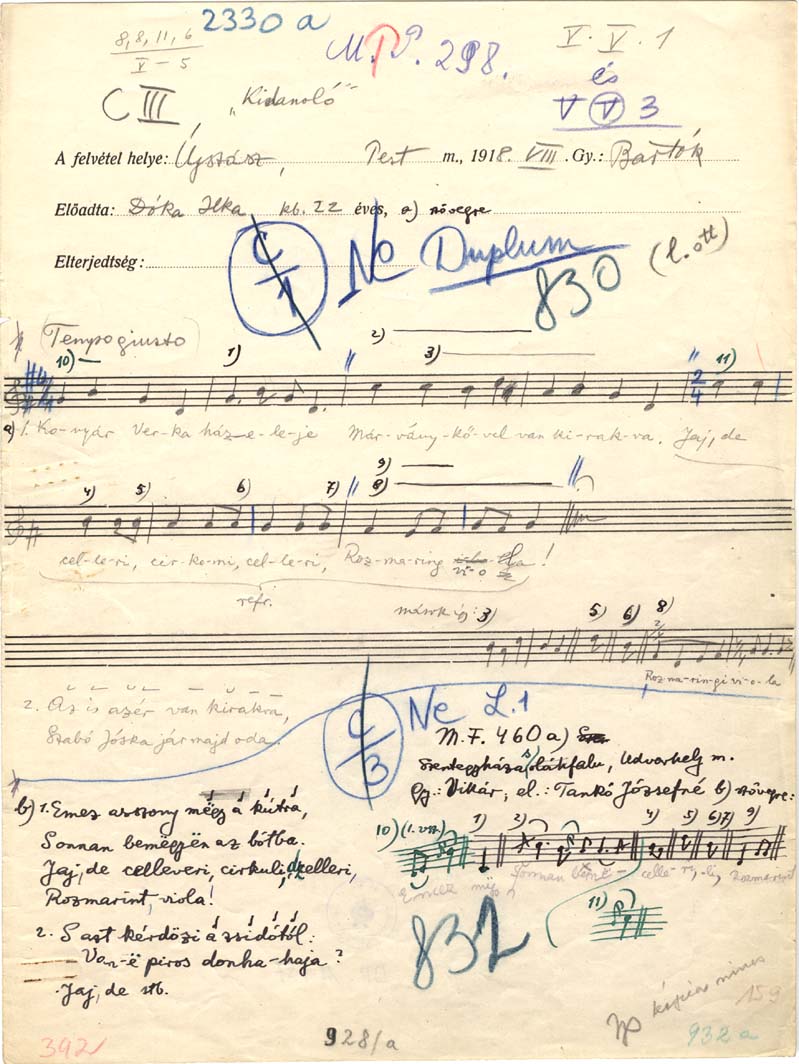 2330 a
8, 8, 11, 6
V – 5
M. P. 298.
V. V. 1
és
V V 3
C III, „Kidanoló”
A felvétel helye: Újszász, Pest m., 1918. VIII. Gy.: Bartók
Előadta: Dóka Ilka kb. 22 éves, a) szövegre
Elterjedtség:
C/1 No Duplum
830 (l. ott)
Tempo giusto
10) 1) 2) 3) 11)
2/4
a) 1. Ko-nyár Ver-ka ház-e-le-je Már-vány-kő-vel van ki-rak-va. Jaj, de
4) 5) 6) 7) 8) 9)
cel-le-ri, cir-ko-mi, cel-le-ri, Roz-ma-ring vi-o-la!
refr.
másk 3) 5) 6) 8)
Roz-ma-rin-gi vi-o-la
2. Az is azér van kirakva,
Szabó Jóska jár majd oda.
C/3 Ne L.1
M.F. 460 a)
Szentegyházasoláhfalu, Udvarhely m.
Gy.: Vikár, el.: Tankó Józsefné b) szövegre:
b) 1. Emez asszony mëgy a kútra,
Sonnan bemëgyën az bótba.
Jaj, de celleveri, cirkuli, dzelleri,
Rozmarint, viola!
2. S azt kérdözi a zsidótól:
Van-ë piros donha-haja?
Jaj, de stb.
10) (1. vsz.) 1) 2) 4) 5) 6) 7) 9)
Sonnan celle-ri, rozmarint
11)
832
kópia nincs
159
392
928/a
932 a